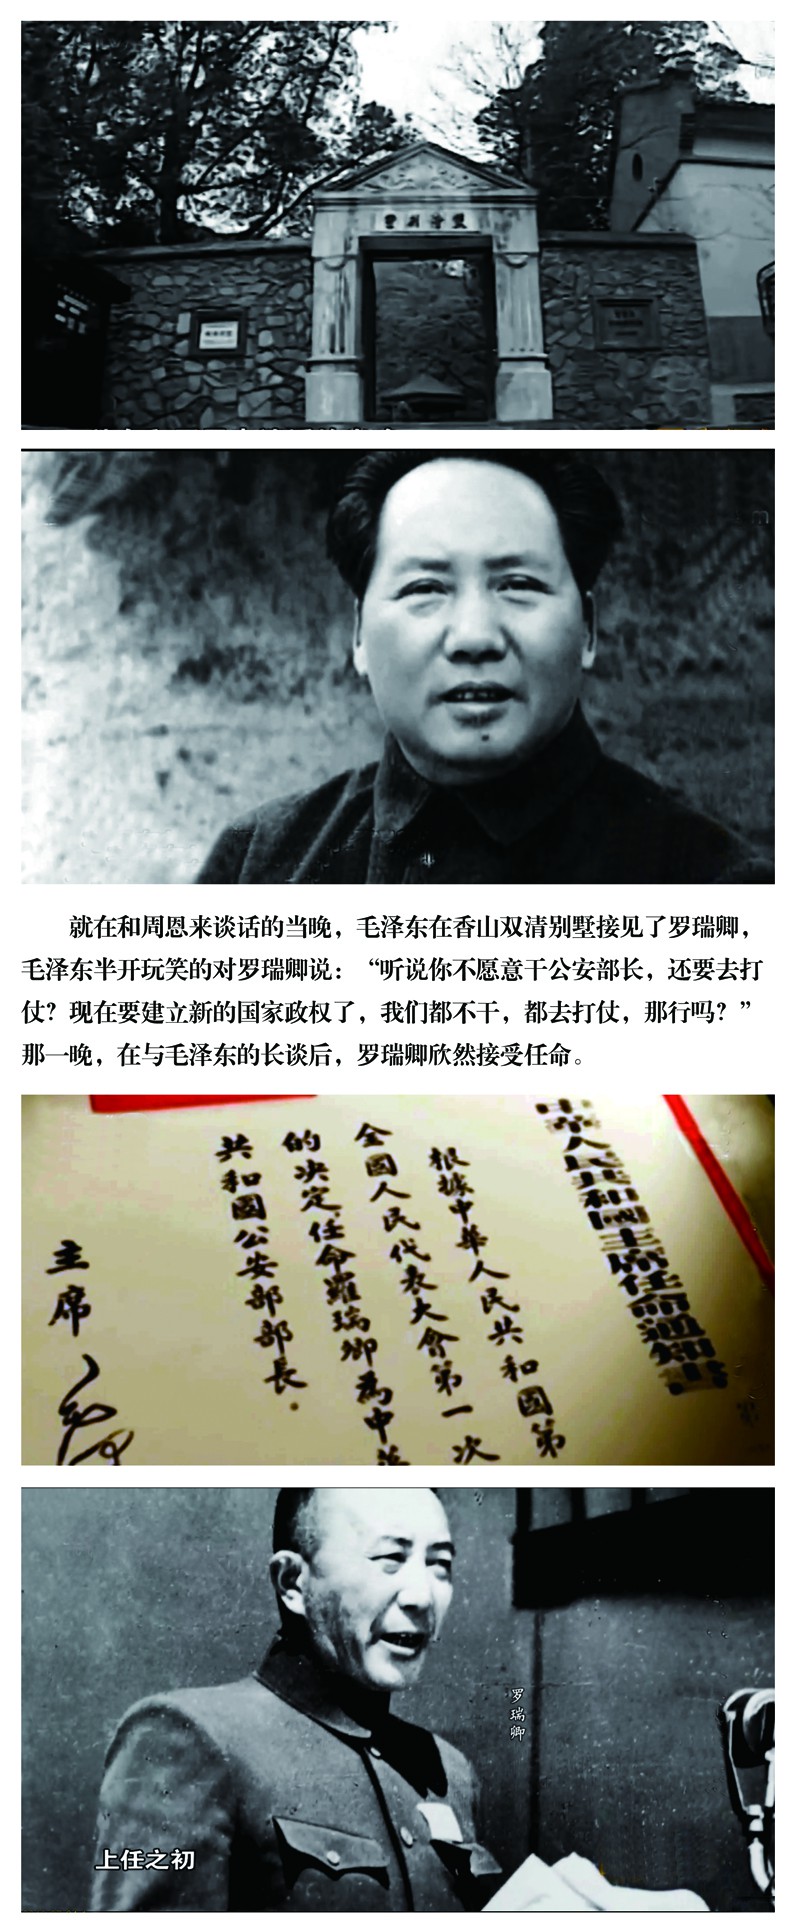 就在和周恩来谈话的当晚，毛泽东在香山双清别墅接见了罗瑞卿，
毛泽东半开玩笑的对罗瑞卿说：“听说你不愿意干公安部长，还要去打
仗？现在要建立新的国家政权了，我们都不干，都去打仗，那行吗？”
那一晚，在与毛泽东的长谈后，罗瑞卿欣然接受任命。
中華人民共和國主席任命通知書
根據中華人民共和國第
全國人民代表大會第一次
的決定，任命羅瑞卿為中華
共和國公安部部長。
主席
罗瑞卿
上任之初